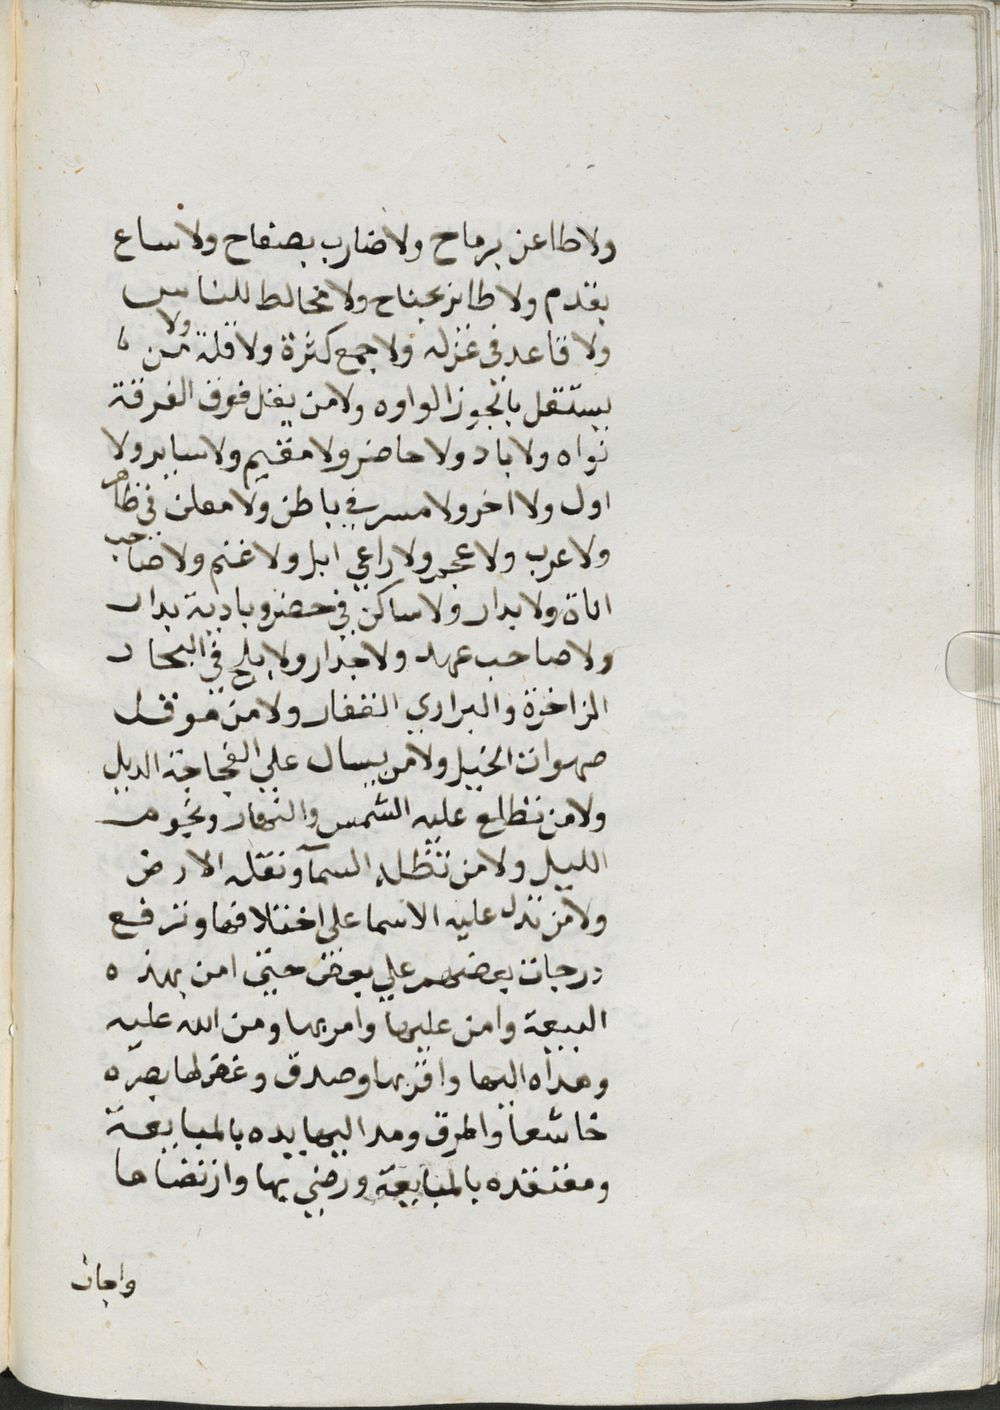 ولا طاعن برماح ولا ضارب بصفاح ولا ساع
بقدم ولا طائر بجناح ولا مخالط للناس
ولا قاعد في عزله ولا جمع كثرة ولا قلة ولا من
يستقل بالجوزا لواوه ولا من يقل فوق الفرقة
نواه ولا باد ولا حاضر ولا مقيم ولا ساير ولا
اول ولا اخر ولا مسر في باطن ولا معلن في ظاهر
ولا عرب ولا عجم ولا راعي ابل ولا غنم ولا صاحب
اناة ولا بدار ولا ساكن في حضر وبادية بدار
ولا صاحب عمد ولا جدار ولا يلج في البحار
الزاخرة والبراري القفار ولا من توقل
صهوات الخيل ولا من يسبل علي العجاجة الذيل
ولا من تطلع عليه الشمس والنهار ونجوم
الليل ولا من تظله السمآ وتقله الارض
ولا من تدل عليه الاسما على اختلافها وترفع
درجات بعضهم علي بعض حتى امن بهذه
البيعة وامن عليها وامر بها ومن الله عليه
وهداه اليها واقر بها وصدق وغض لها بصره
خاشعا واطرق ومد اليها يده بالمبايعة
ومعتقده بالمبايعة ورضي بها وارتضاها
واجات